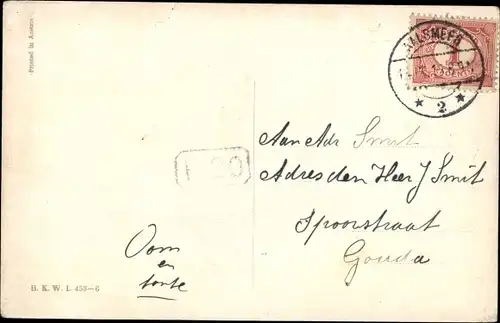 Printed in Austria
AALSMEER
2
Aan Adr Smit
Adres den Heer J Smit
Spoorstraat
Gouda
Oom
en
tante
B. K. W. I. 453-6